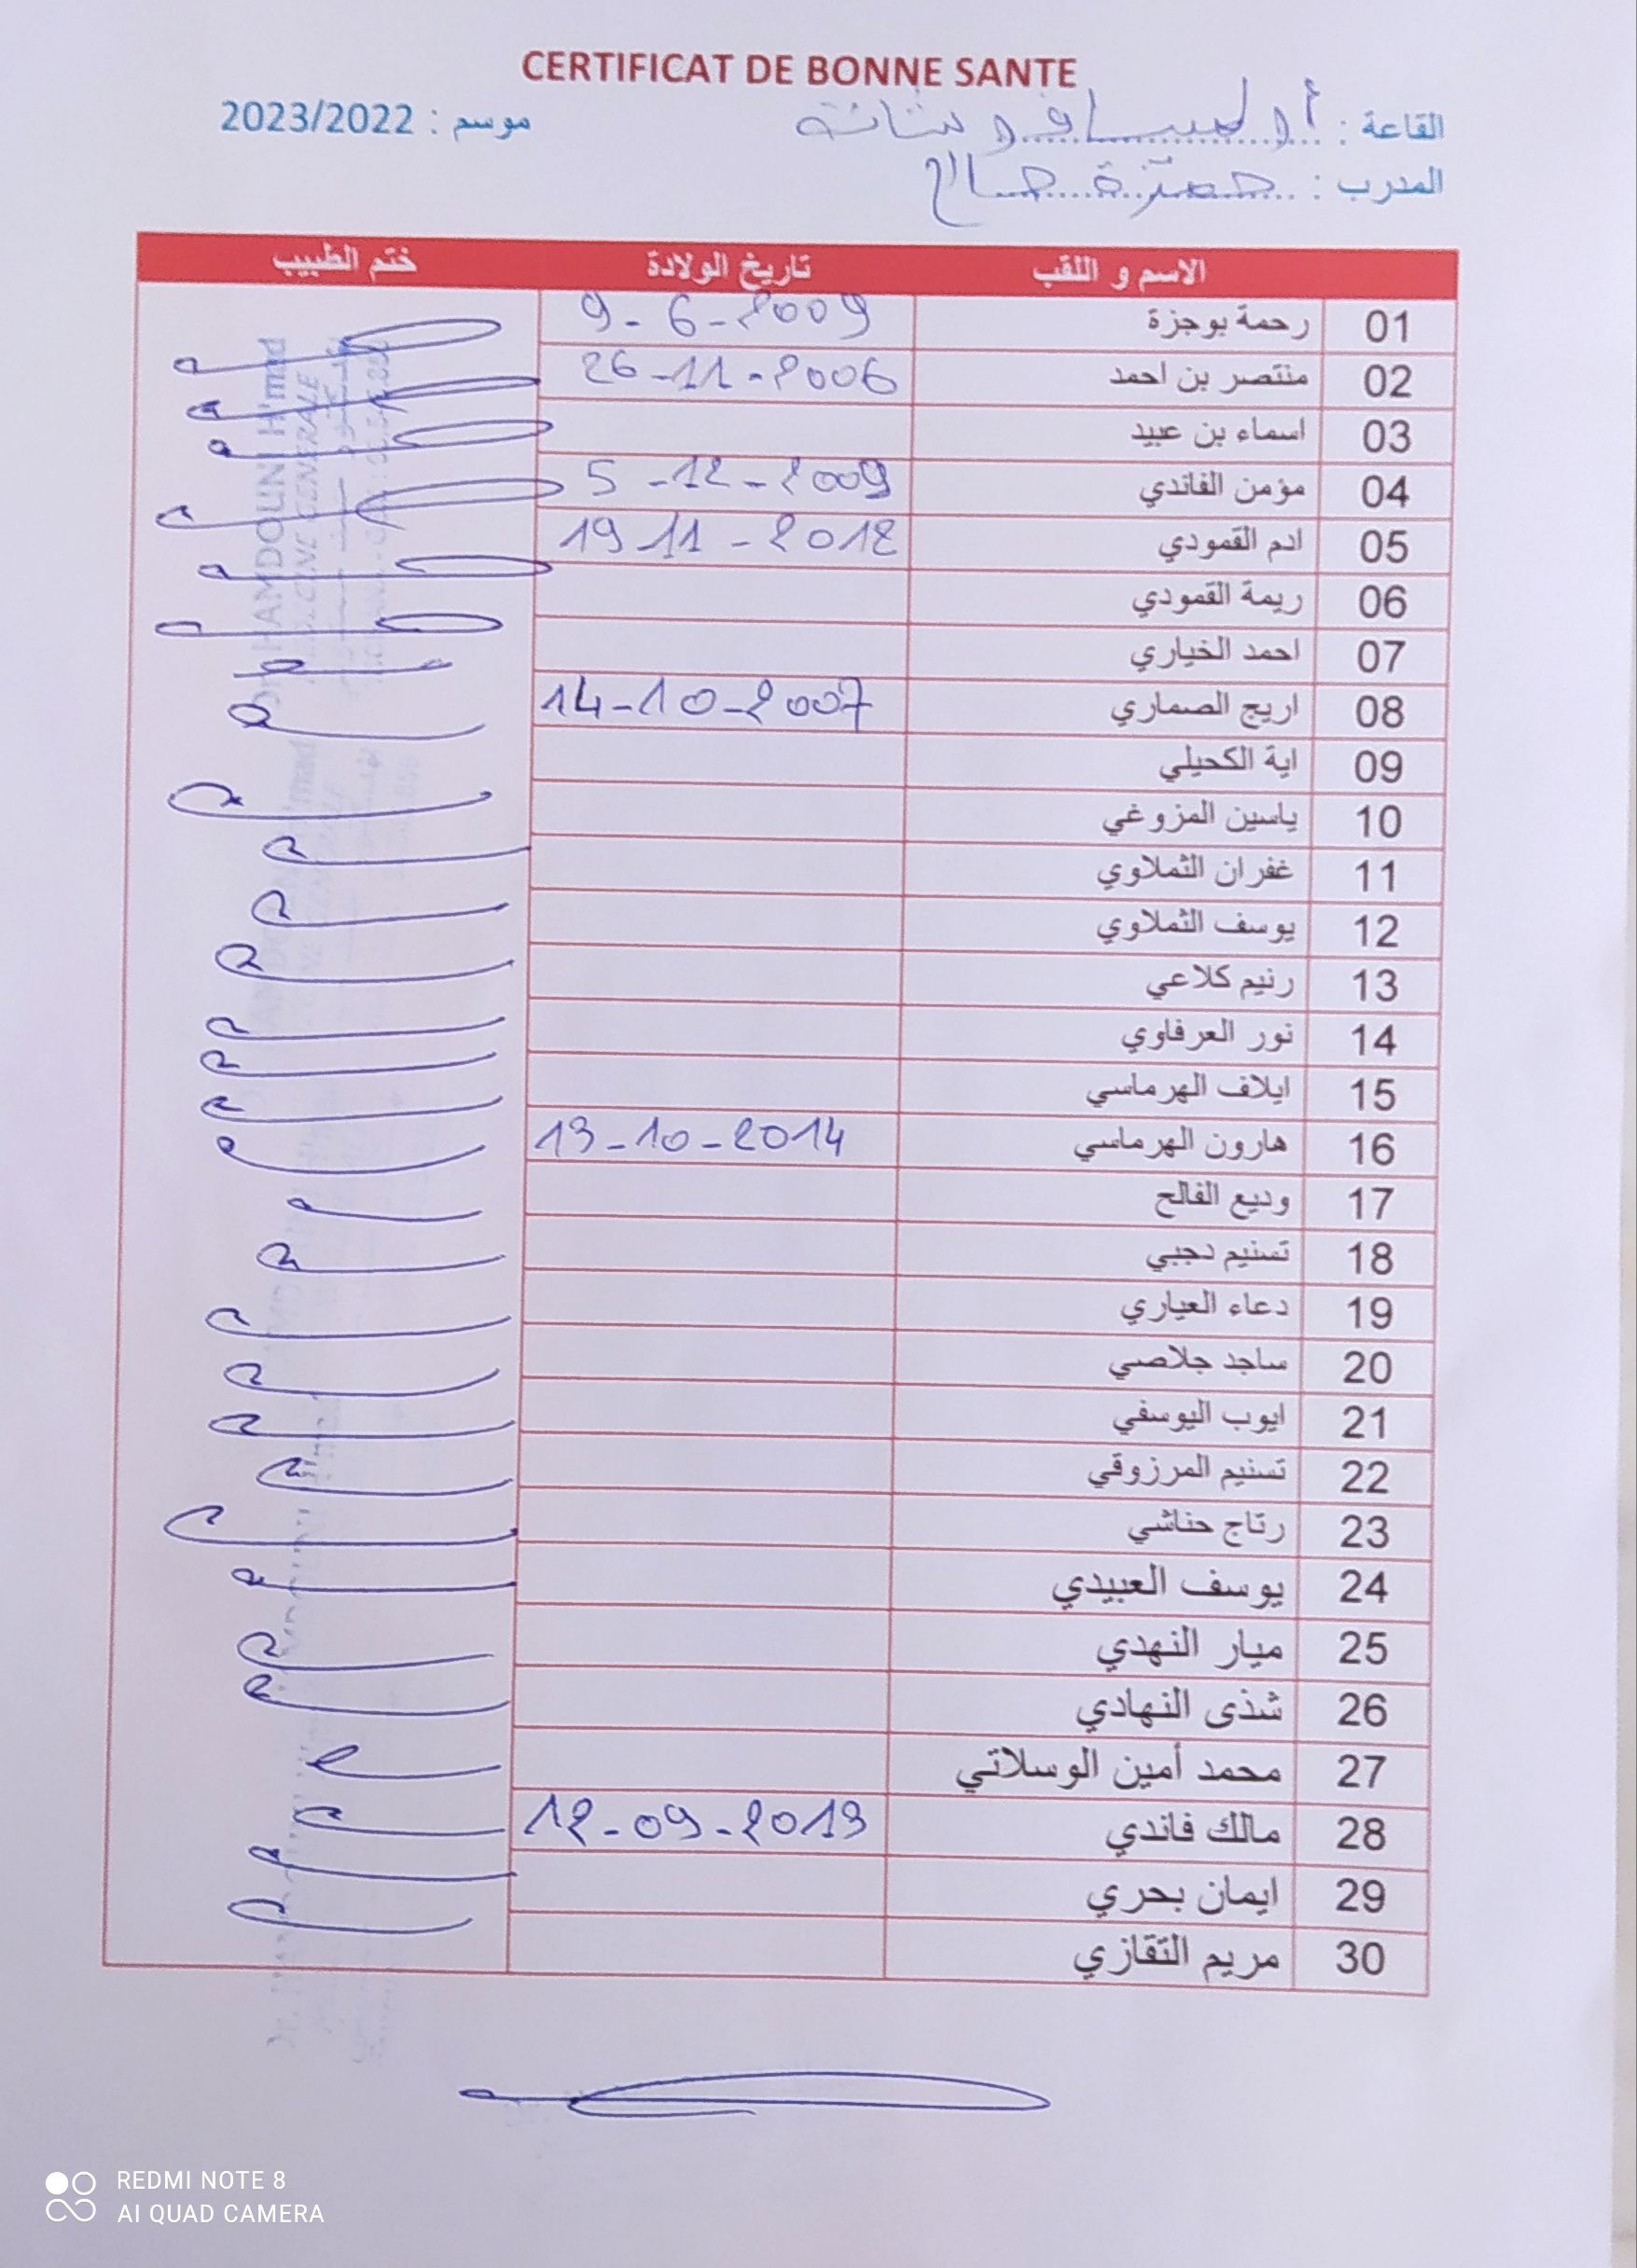 CERTIFICAT DE BONNE SANTE
القاعة : موسم : 2023/2022
المدرب : حمزة صالح
الاسم و اللقب تاريخ الولادة ختم الطبيب
01 رحمة بوجزة 9-6-2009
02 منتصر بن احمد 26-11-2006
03 اسماء بن عبيد
04 مؤمن الفاندي 5-12-2009
05 ادم القمودي 19 11-2012
06 ريمة القمودي
07 احمد الخياري
08 اريج الصماري 14-10-2007
09 اية الكحيلي
10 ياسين المزوغي
11 غفران الثملاوي
12 يوسف الثملاوي
13 رنيم كلاعي
14 نور العرفاوي
15 ايلاف الهرماسي
16 هارون الهرماسي 13-10-2014
17 وديع الفالح
18 تسنيم دجبي
19 دعاء العياري
20 ساجد جلاصي
21 ايوب اليوسفي
22 تسنيم المرزوقي
23 رتاج حناشي
24 يوسف العبيدي
25 ميار النهدي
26 شذى النهادي
27 محمد أمين الوسلاتي
28 مالك فاندي 12-09-2013
29 ايمان بحري
30 مريم التقازي
REDMI NOTE 8
AI QUAD CAMERA